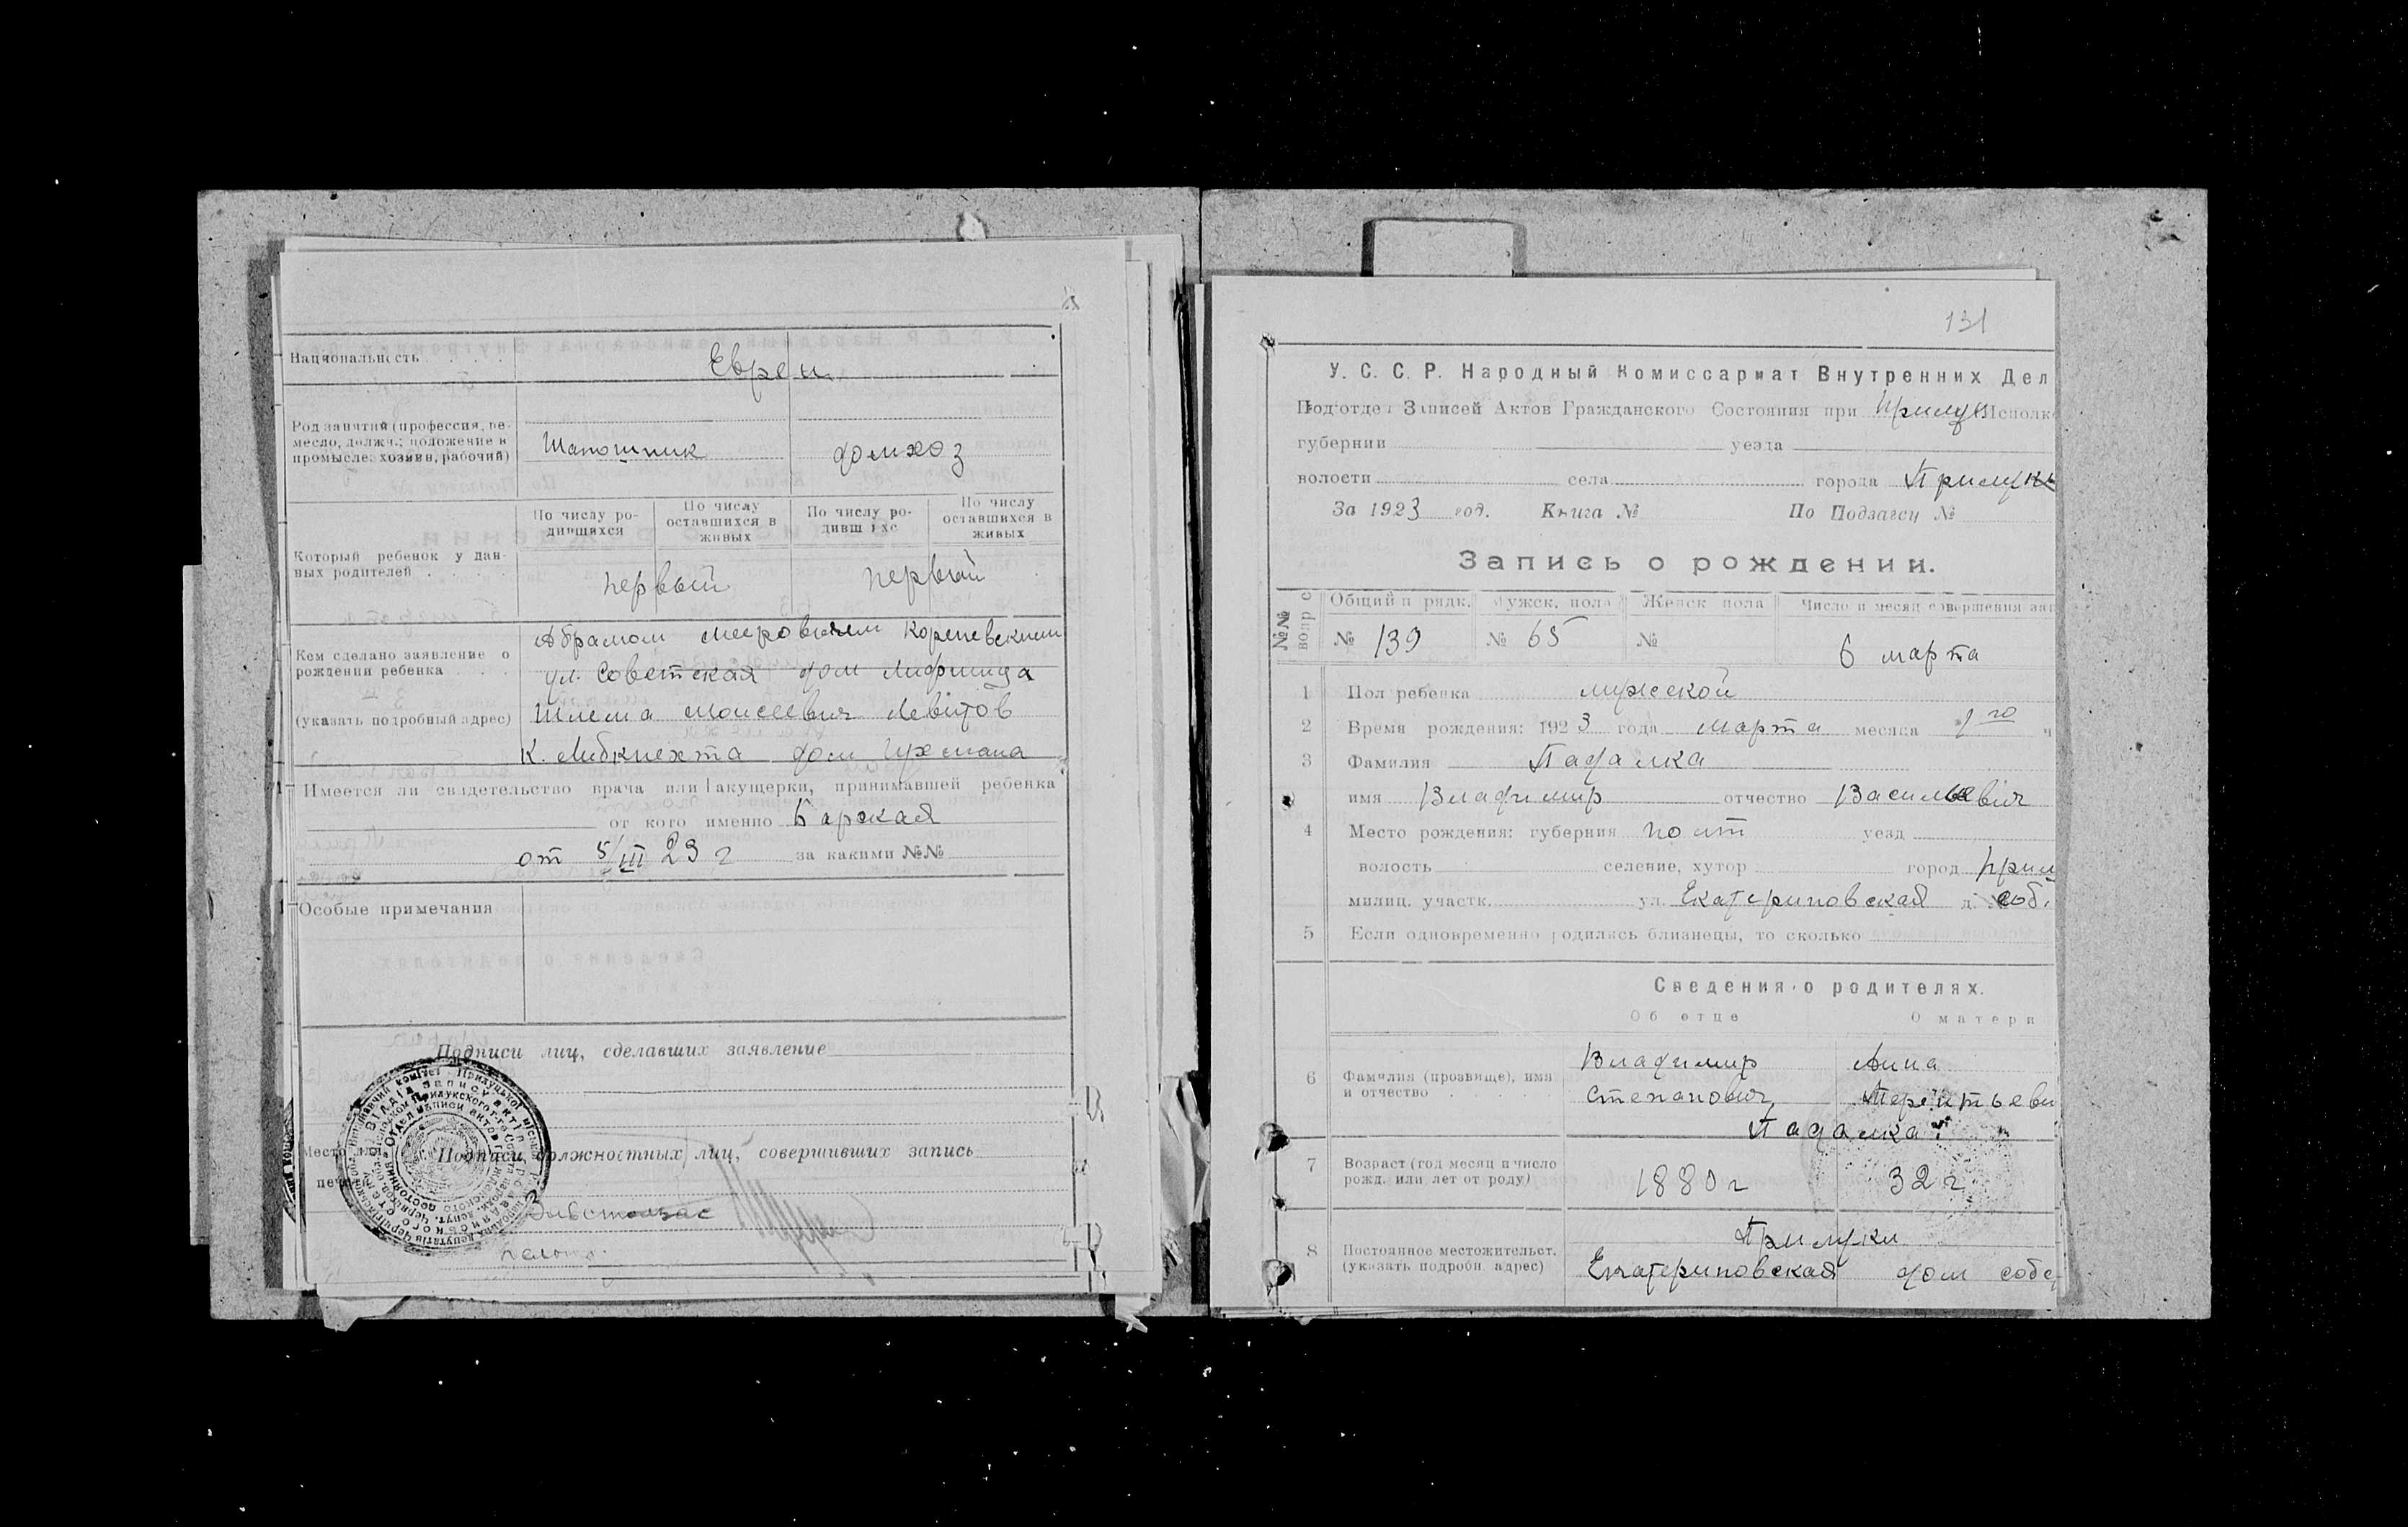 Национальность
Евреи
Род занятий (профессия, ре-
месло, должн.; положение в
промысле: хозяин, рабочий)
Шапошник
домхоз
По числу ро-
дившихся
По числу
оставшихся в
живых
По числу ро-
дившихс
По числу
оставшихся в
живых
Который ребенок у дан-
ных родителей
первый
первый
Кем сделано заявление о
рождении ребенка
(указать подробный адрес)
Абрамом Мееровичем Кореневским
ул. Советская дом Лифшица
Шлема Моисеевич Левитов
К. Либкнехта дом Цухмана
Имеется ли свидетельство врача или акушерки, принимавшей ребенка
от кого именно Барская
от 5/III 23 г за какими №№
Особые примечания
Подписи лиц, сделавших заявление
Место
печ
Подписи должностных лиц, совершивших запись
131
У. С. С. Р. Народный Комиссариат Внутренних Дел
Подотдел Записей Актов Гражданского Состояния при Прилуц Исполк
губернии уезда
волости села города Прилуки
За 1923 год. Книга № По Подзагсу №
Запись о рождении.
№№
вопрос
Общий п рядк. Мужск. пола Женск пола Число и месяц совершения зап
№ 139 № 65 № 6 марта
1 Пол ребенка мужской
2 Время рождения: 1923 года марта месяца 1го ч
3 Фамилия Падалка
имя Владимир отчество Васильевич
4 Место рождения: губерния полт уезд
волость селение, хутор город Прил
милиц. участк. ул. Екатериновская д. соб.
5 Если одновременно родились близнецы, то сколько
Сведения о родителях.
Об отце О матери
6 Фамилия (прозвище), имя
и отчество
Владимир
Степанович
Анна
Терентьевн
Падалка
7 Возраст (год месяц и число
рожд. или лет от роду)
1880 г 32 г
8 Постоянное местожительст.
(указать подробн. адрес)
Прилуки
Екатериновская дом собс